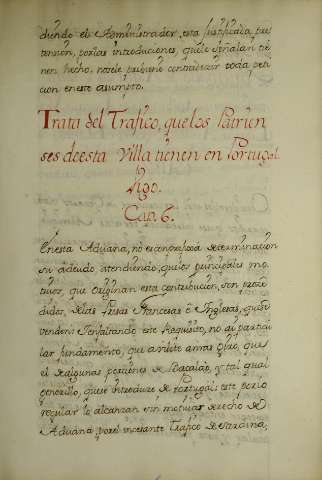 diendo el Administrador, esta justificada pre
tension, por las introduciones, que le señalan tie
nen hecho, no se le pribe ni contradecir toda peti
cion en este asumpto.
Trata del Trafico, que los Patrien
ses de esta Villa tienen en Portugal
Vigo.
Cap. 6.
En esta Aduana, no es determinacion
su adeudo, atendiendo, que los principales mo
tivos, que originan esta contribucion, son proce
didos, de las Presas Francesas è Inglesas, que se
venden: I en faltando este Requisito, no ai particu
lar fundamento, que à vista arras
el de algunas porciones de Bacalao, y tal qual
generillo, que se introduce de Portugal: este pero
regular lo alcanzan sin motivar derecho de
Aduana, por el incesante Trafico de Sardina,